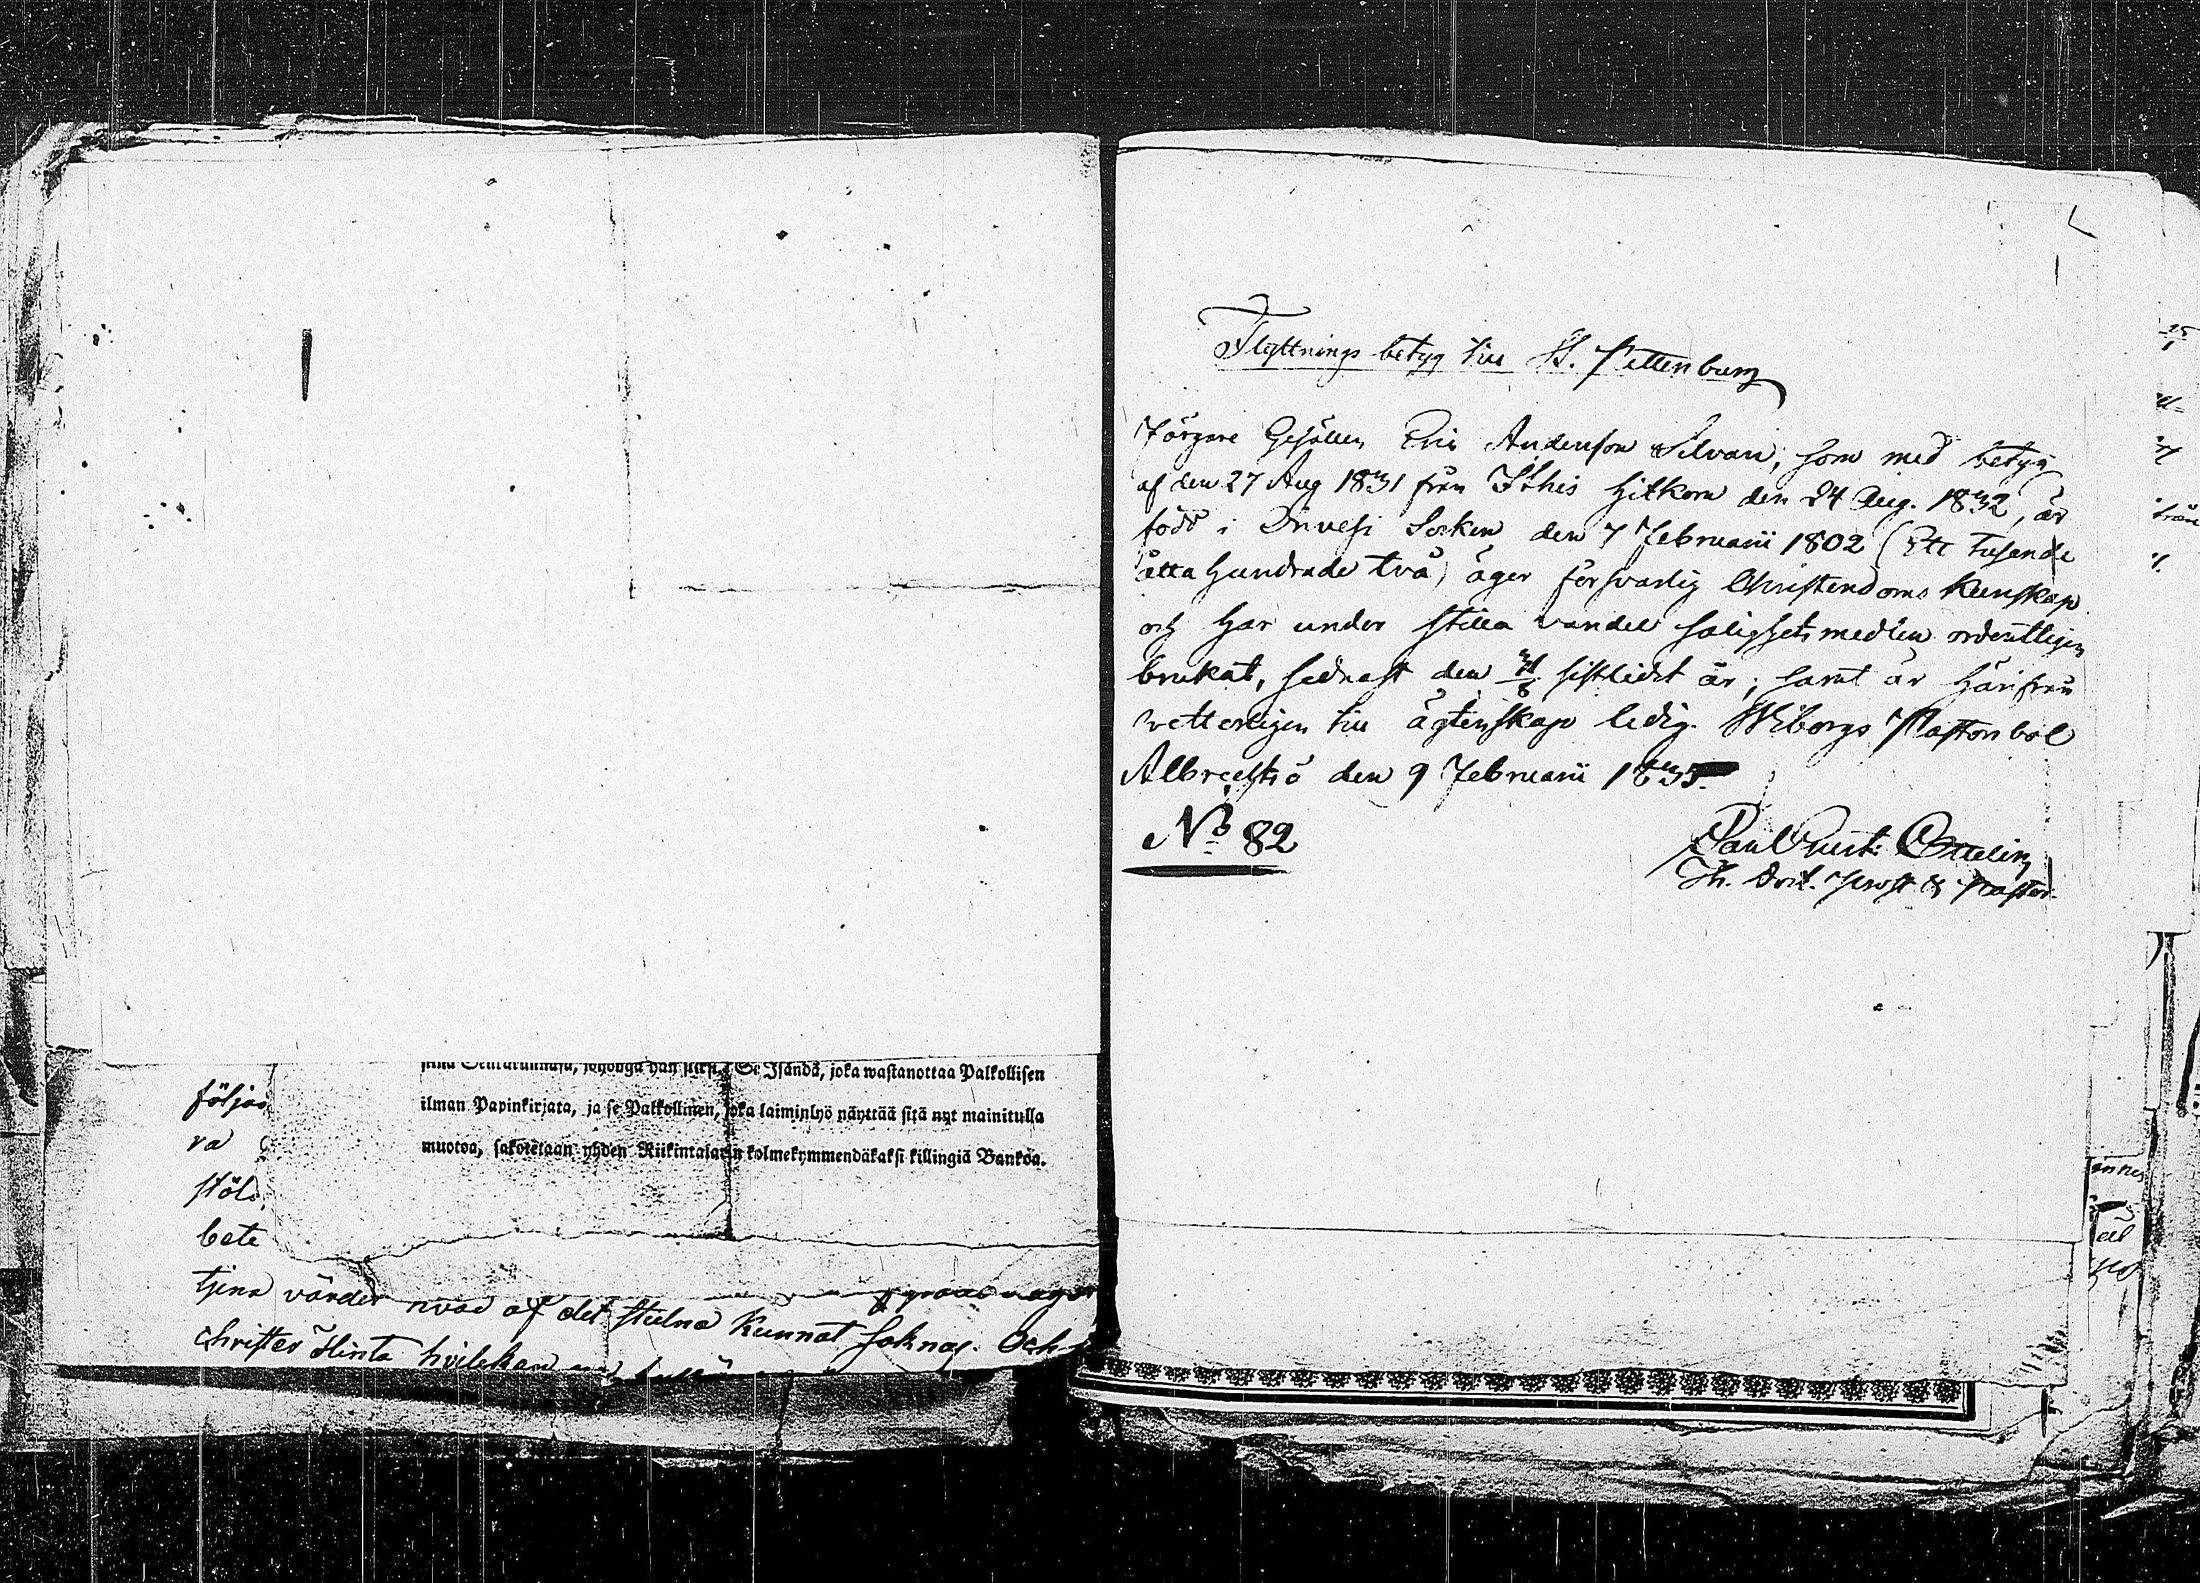 följas
ra
stöl
bete
Se Isändä, joka wastanottaa Palkollisen
ilman Papinkirjata, ja se Palkollinen, joka laiminlyö näyttää sitä nyt mainitulla
muotoa, sakotetaan yhden Riikintalarin kolmekymmendäkaksi killingiä Bankoa.
tjena värder hvad af det stulna kunnat saknas. Och
Christer Hinta hvilken
Flyttnings betyg till St. Pettersburg
Färgare Gesällen Eric Andersson Silvan, som med betyg
af den 27 Aug 1831 från Itthis hitkom den 24 Aug. 1832, är
född i Orivesi Socken den 7 Februarii 1802 (Ett Tusende
åtta hundrade två) äger försvarlig Christendoms Kunskap
och har under stilla vandel salighetsmedlen ordentligen
brukat, sednast den sistlidet år; samt är härifrån
wetterligen till ägtenskap ledig. Wiborgs Pastorsbol
Albrectsö den 9 Februarii 1835.
No 82
Th. Doct. Prost & Pastor.
från